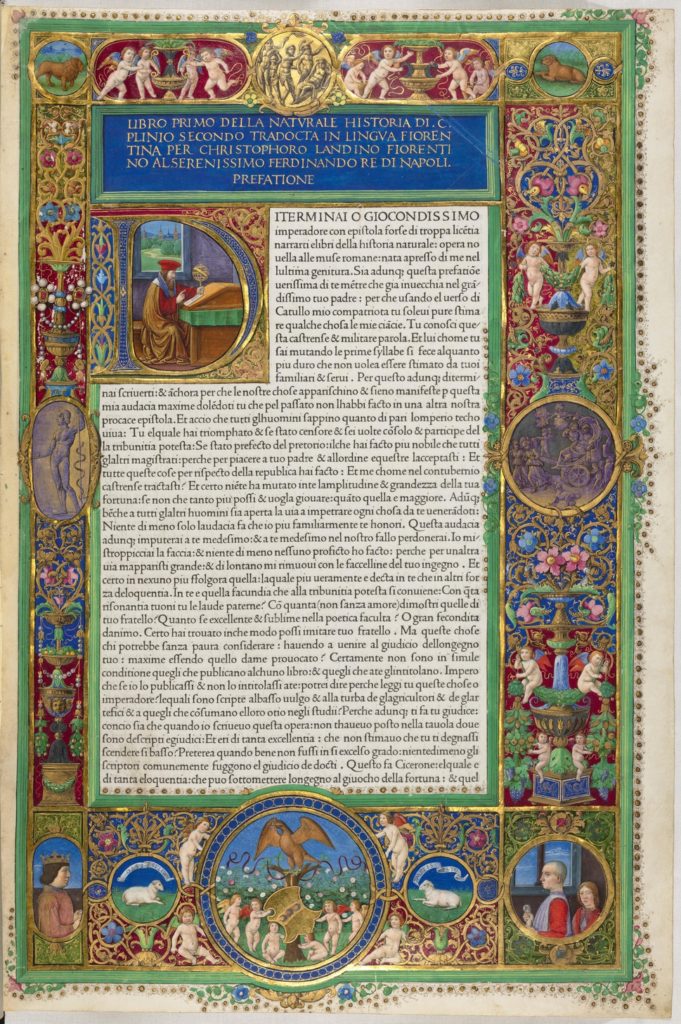 LIBRO PRIMO DELLA NATVRALE HISTORIA DI. C.
PLINIO SECONDO TRADOCTA IN LINGVA FIOREN
TINA PER CHRISTOPHORO LANDINO FIORENTI
NO AL SERENISSIMO FERDINANDO RE DI NAPOLI.
PREFATIONE
D
ITERMINAI O GIOCONDISSIMO
imperadore con epistola forse di troppa licẽtia
narrarti elibri della historia naturale: opera no
uella alle muse romane: nata apresso di me nel
lultima genitura. Sia adunq; questa prefatiõe
uerissima di te mẽtre che gia inuecchia nel grã
dissimo tuo padre: per che usando el uerso di
Catullo mio compatriota tu soleui pure stima
re qualche chosa le mie ciãcie. Tu conosci que
sta castrense & militare parola. Et lui chome tu
sai mutando le prime syllabe si fece alquanto
piu duro che non uolea essere stimato da tuoi
familiari & serui. Per questo adunq; ditermi-
nai scriuerti: & ãchora per che le nostre chose apparischino & sieno manifeste p questa
mia audacia maxime dolẽdoti tu che pel passato non lhabbi facto in una altra nostra
procace epistola. Et accio che tutti glhuomini sappino quanto di pari lomperio techo
uiua: Tu elquale hai triumphato & se stato censore & sei uolte cõsolo & participe del
la tribunitia potesta: Se stato prefecto del pretorio: ilche hai facto piu nobile che tutti
glaltri magistrati: perche per piacere a tuo padre & allordine equestre lacceptasti: Et
tutte queste cose per rispecto della republica hai facto: Et me chome nel contubernio
castrense tractasti? Et certo niẽte ha mutato inte lamplitudine & grandezza della tua
fortuna: se non che tanto piu possi & uogla giouare: quãto quella e maggiore. Adũq;
bẽche a tutti glaltri huomini sia aperta la uia a impetrare ogni chosa da te uenerãdoti:
Niente di meno solo laudacia fa che io piu familiarmente te honori. Questa audacia
adunq; imputerai a te medesimo: & a te medesimo nel nostro fallo perdonerai. Io mi
stroppicciai la faccia: & niente di meno nessuno proficto ho facto: perche per unaltra
uia mapparisti grande: & di lontano mi rimuoui con le faccelline del tuo ingegno. Et
certo in nexuno piu sfolgora quella: laquale piu ueramente e decta in te che in altri for
za deloquentia. In te e quella facundia che alla tribunitia potesta si conuiene: Con q̃ta
risonantia tuoni tu le laude paterne? Cõ quanta (non sanza amore) dimostri quelle di
tuo fratello? Quanto se excellente & sublime nella poetica faculta? O gran fecondita
danimo. Certo hai trouato inche modo possi imitare tuo fratello. Ma queste chose
chi potrebbe sanza paura considerare: hauendo a uenire al giudicio dellongegno
tuo: maxime essendo quello dame prouocato? Certamente non sono in simile
conditione quegli che publicano alchuno libro: & quegli che a te glintitolano. Impero
che se io lo publicassi & non lo intitolassi a te: potrei dire perche leggi tu queste chose o
imperadore? lequali sono scripte albasso uulgo & alla turba de glagricultori & de glar
tefici & a quegli che cõsumano elloro otio negli studii? Perche adunq; ti fa tu giudice:
concio sia che quando io scriueuo questa opera: non thaueuo posto nella tauola doue
sono descripti egiudici: Et eri di tanta excellentia: che non stimauo che tu ti degnassi
scendere si basso? Preterea quando bene non fussi in si excelso grado: nientedimeno gli
scriptori comunemente fuggono el giudicio de docti. Questo fa Cicerone: elquale e
di tanta eloquentia: che puo sottomettere longegno al giuocho della fortuna: & quel